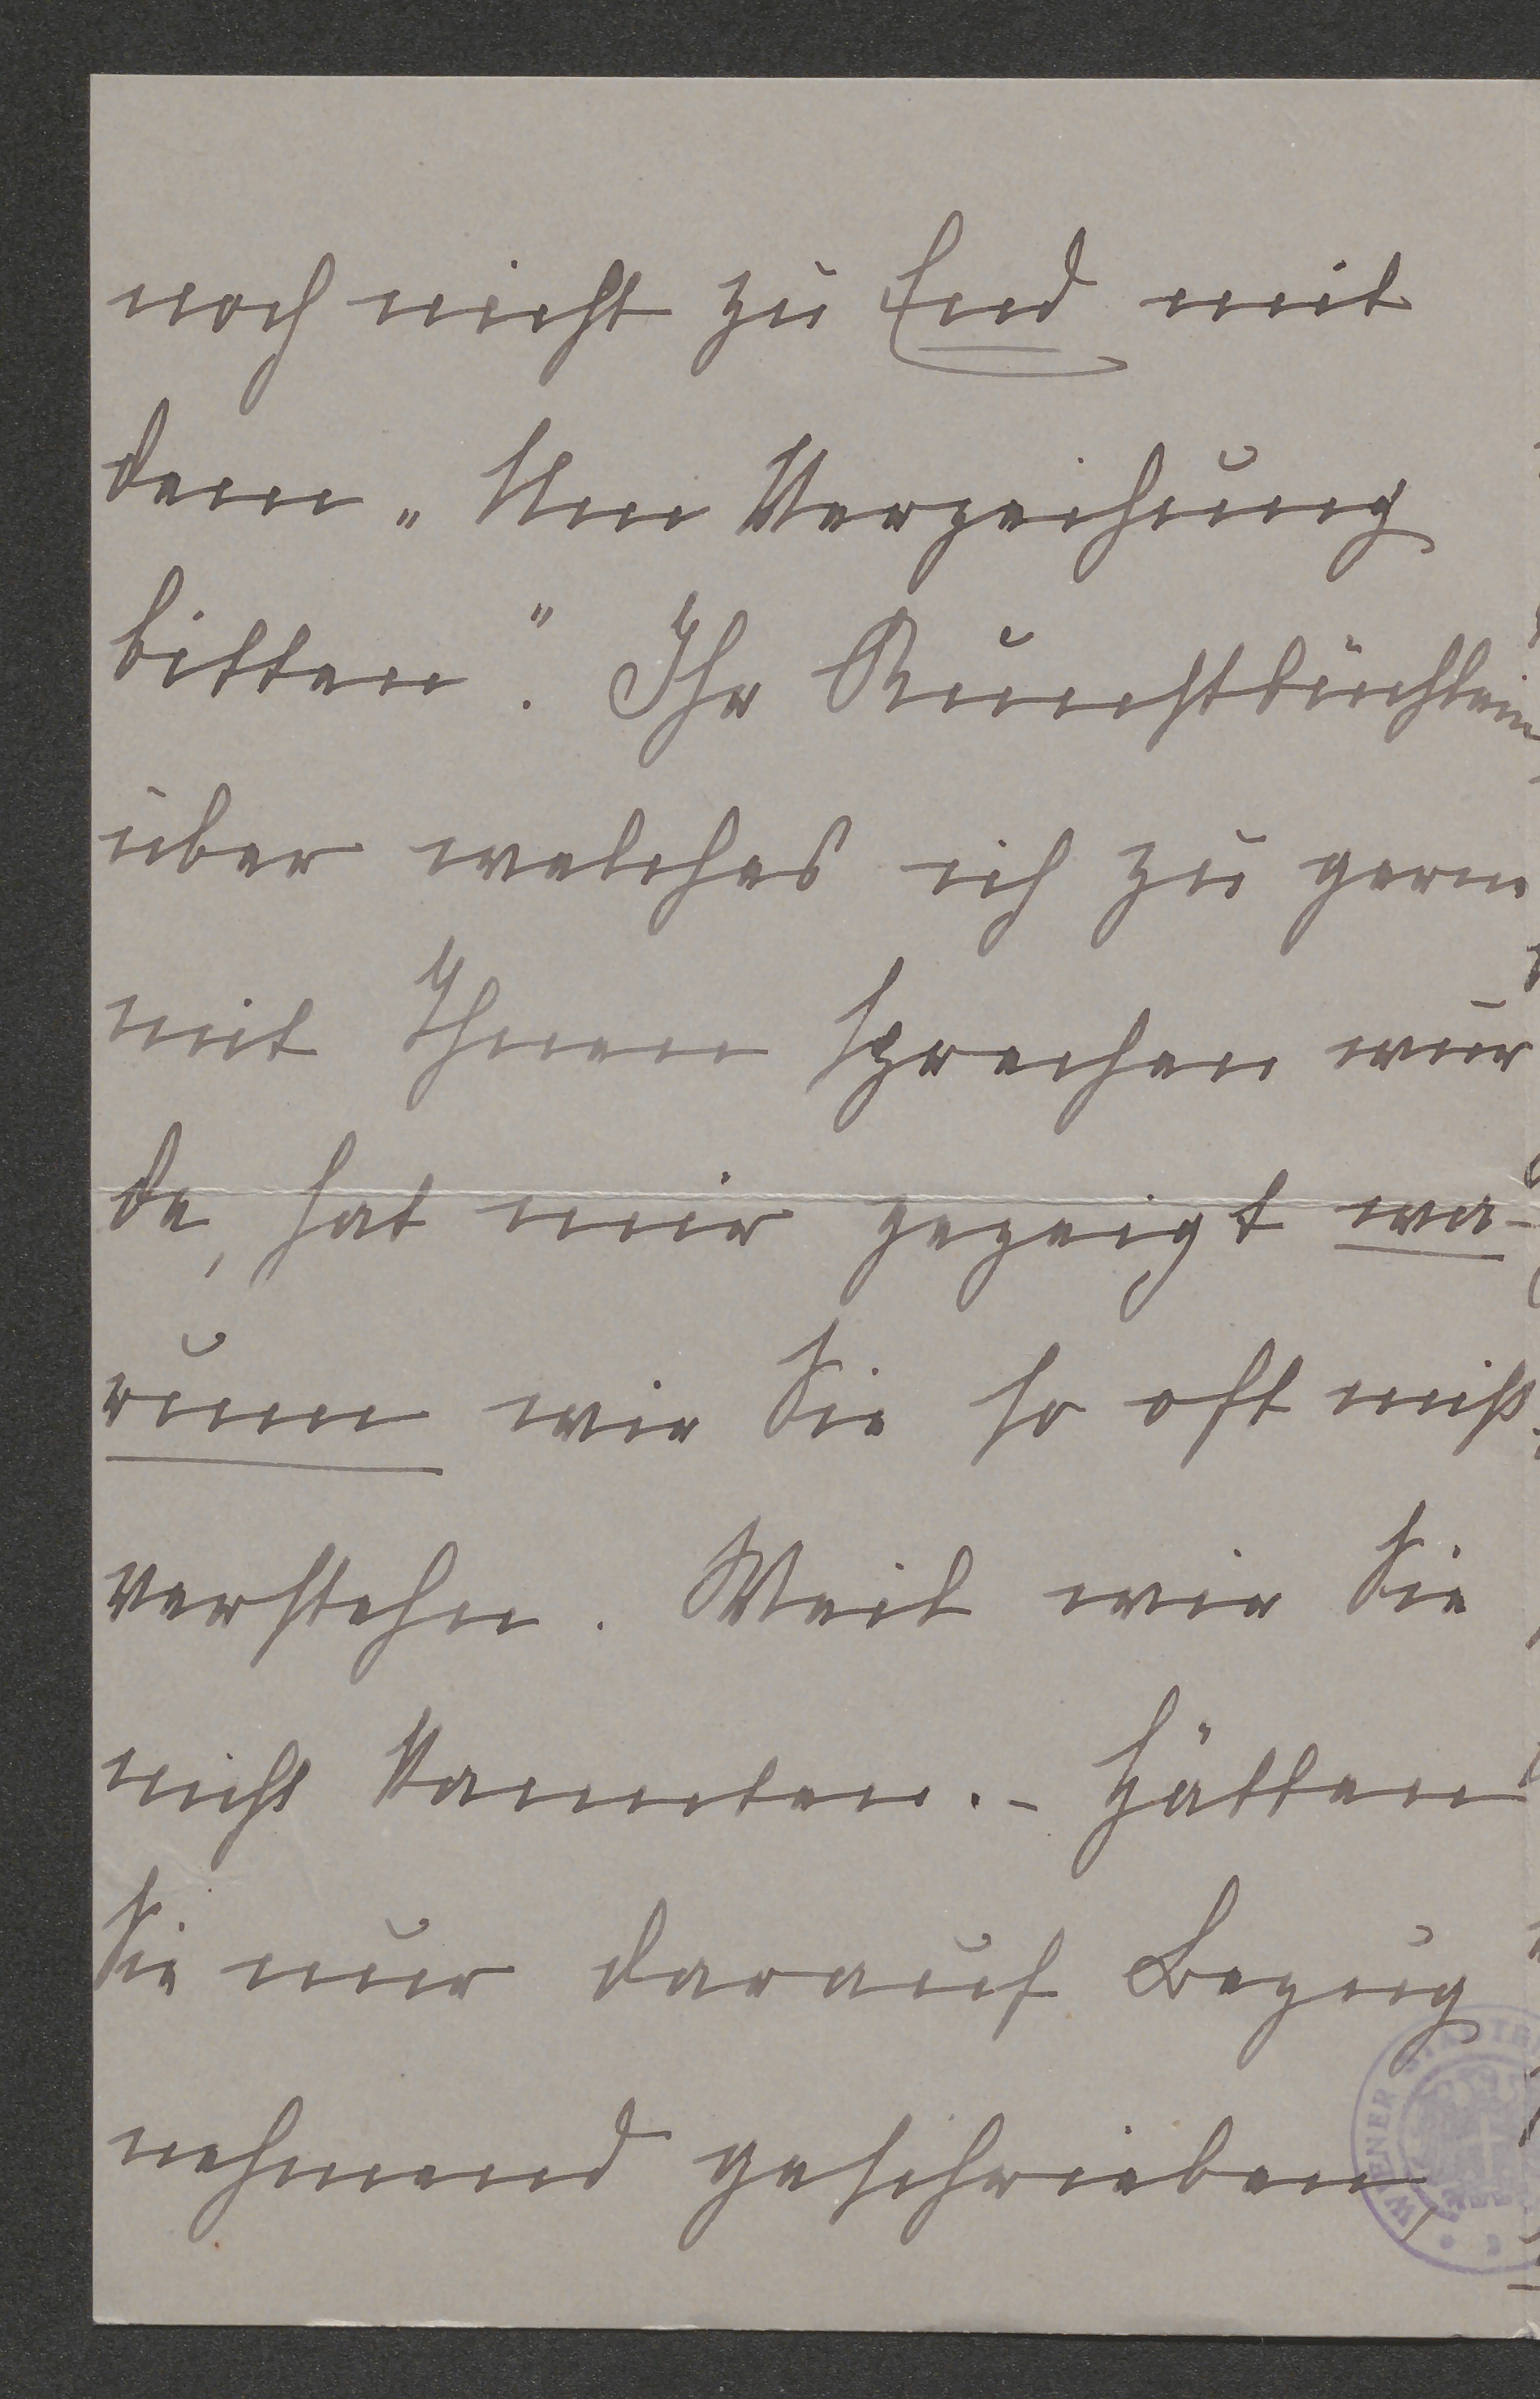 noch nicht zu End mit
dem „Um Verzeihung
bitten". Ihr Kunstbüchlein
über welches ich zu gern
mit Ihnen sprechen wür
de, hat mir gezeigt wa-
rum wir Sie so oft miß-
verstehn. Weil wir Sie
nicht kannten. – Hätten
Sie nur darauf Bezug
nehmend geschrieben
WIENER STADTB